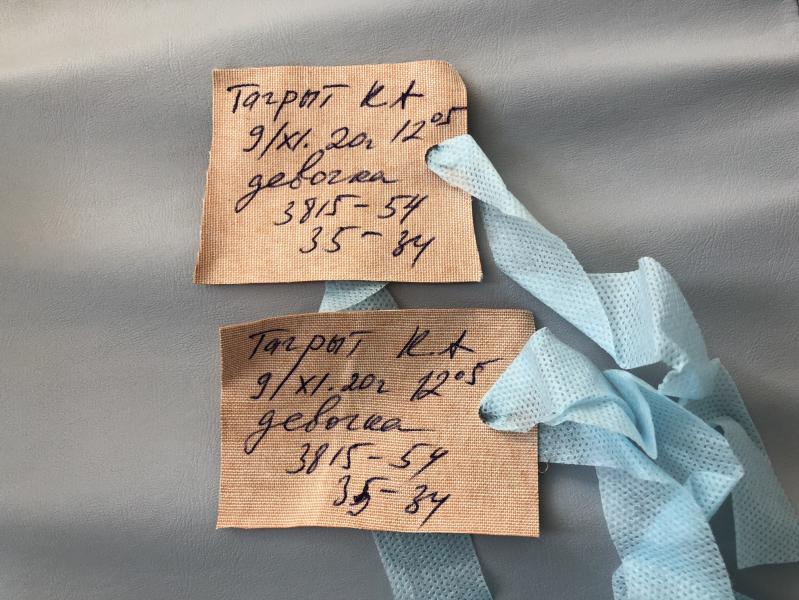 Тагрыт К А
9/XI. 20г 12⁰⁵
девочка
3815 - 54
35 - 34
Тагрыт К. А
9/XI. 20г 12⁰⁵
девочка
3815 - 54
35 - 34